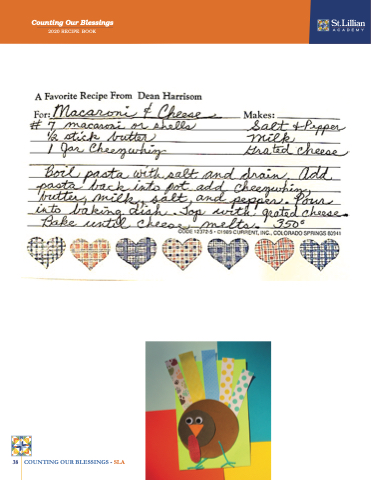 Counting Our Blessings
2020 RECIPE BOOK
St.Lillian
ACADEMY
A Favorite Recipe From Dean Harrisom
For: Macaroni & Cheese Makes:
# 7 macaroni or shells Salt & Pepper
1/2 stick butter milk
1 Jar Cheezwhiz Grated cheese
Boil pasta with salt and drain. Add
pasta back into pot add cheezwhiz,
butter, milk, salt, and pepper. Pour
into baking dish. Top with grated cheese.
Bake until cheese melts. 350°
CODE 12372-5 • ©1989 CURRENT, INC., COLORADO SPRINGS 80941
38 COUNTING OUR BLESSINGS - SLA